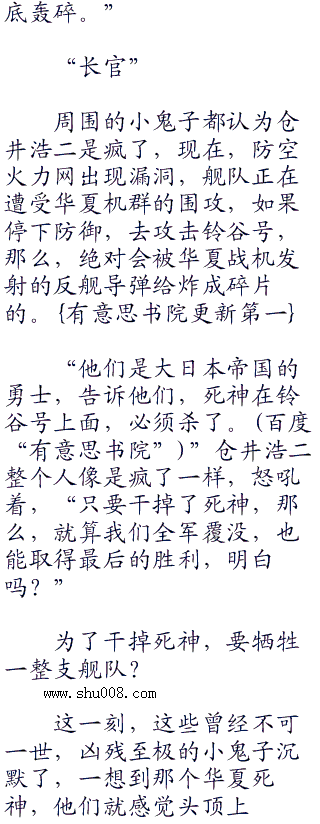 底轰碎。”
“长官”
周围的小鬼子都认为仓
井浩二是疯了，现在，防空
火力网出现漏洞，舰队正在
遭受华夏机群的围攻，如果
停下防御，去攻击铃谷号，
那么，绝对会被华夏战机发
射的反舰导弹给炸成碎片
的。{有意思书院更新第一}
“他们是大日本帝国的
勇士，告诉他们，死神在铃
谷号上面，必须杀了。(百度
“有意思书院”)”仓井浩二
整个人像是疯了一样，怒吼
着，“只要干掉了死神，那
么，就算我们全军覆没，也
能取得最后的胜利，明白
吗？”
为了干掉死神，要牺牲
一整支舰队？
www.shu008.com
这一刻，这些曾经不可
一世，凶残至极的小鬼子沉
默了，一想到那个华夏死
神，他们就感觉头顶上